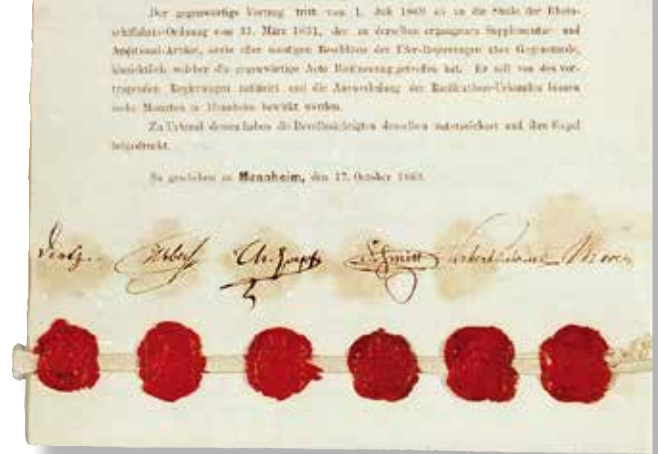 Der gegenwärtige Vertrag tritt vom 1. Juli 1869 ab an die Stelle der Rhein-
schiffahrts-Ordnung vom 31. März 1831, der zu derselben ergangenen Supplementar- und
Additional-Artikel, sowie aller sonstigen Beschlüsse der Ufer-Regierungen über Gegenstände,
hinsichtlich welcher die gegenwärtige Acte Bestimmung getroffen hat. Er soll von den ver-
tragenden Regierungen ratificirt und die Auswechslung der Ratifications-Urkunden binnen
sechs Monaten in Mannheim bewirkt werden.
Zu Urkund dessen haben die Bevollmächtigten denselben unterzeichnet und ihre Siegel
beigedrückt.
So geschehen zu Mannheim, den 17. October 1868.
Dietz. Weber Schmitt